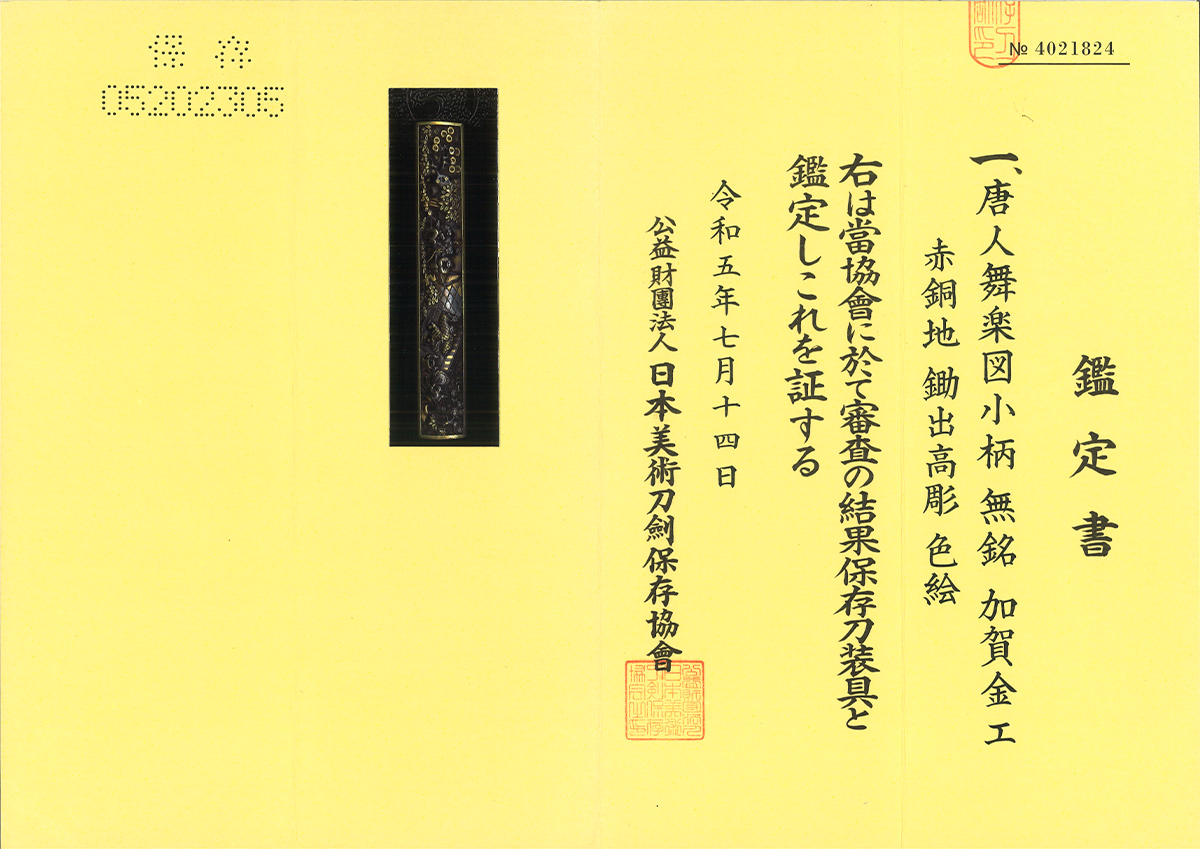 № 4021824
鑑定書
一、唐人舞楽図小柄 無銘 加賀金工
赤銅地 鋤出高彫 色絵
右は當協會に於て審査の結果保存刀装具と
鑑定しこれを証する
令和五年七月十四日
公益財團法人 日本美術刀劍保存協會
保存
05202305